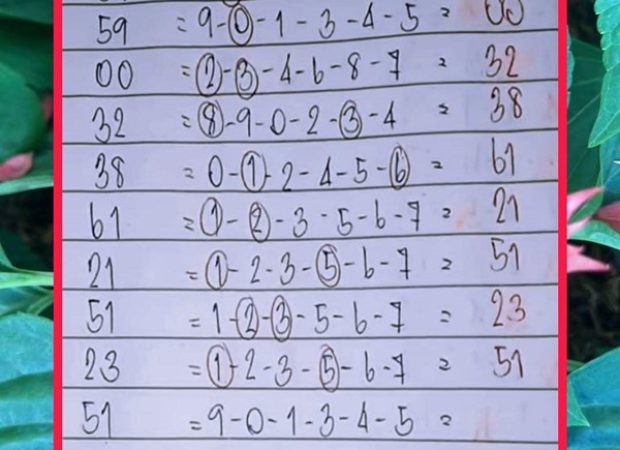 59 = 9-0-1-3-4-5 =
00 = 2-3-4-6-8-7 = 32
32 = 8-9-0-2-3-4 = 38
38 = 0-1-2-4-5-6 = 61
61 = 1-2-3-5-6-7 = 21
21 = 1-2-3-5-6-7 = 51
51 = 1-2-3-5-6-7 = 23
23 = 1-2-3-5-6-7 = 51
51 = 9-0-1-3-4-5 =